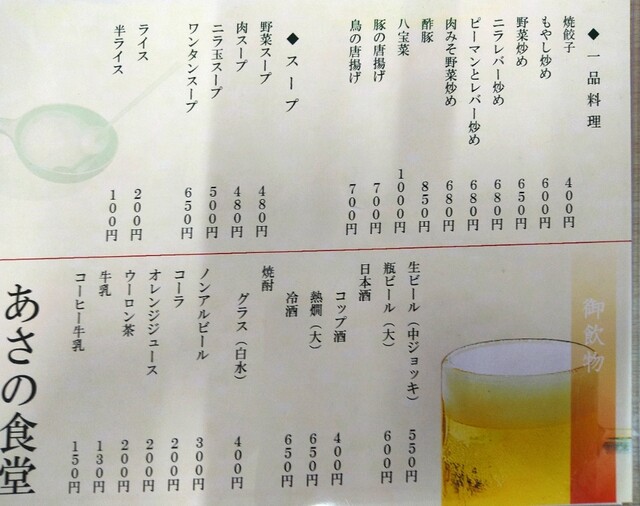 ◆ 一品料理
焼餃子 400円
もやし炒め 600円
野菜炒め 650円
ニラレバー炒め 680円
ピーマンとレバー炒め 680円
肉みそ野菜炒め 680円
酢豚 850円
八宝菜 1000円
豚の唐揚げ 700円
鳥の唐揚げ 700円
◆ スープ
野菜スープ 480円
肉スープ 480円
ニラ玉スープ 500円
ワンタンスープ 650円
ライス 200円
半ライス 100円
御飲物
生ビール（中ジョッキ） 550円
瓶ビール（大） 600円
日本酒
コップ酒 400円
熱燗（大） 650円
冷酒 650円
焼酎
グラス（白水） 400円
ノンアルビール 300円
コーラ 200円
オレンジジュース 200円
ウーロン茶 200円
牛乳 130円
コーヒー牛乳 150円
あさの食堂